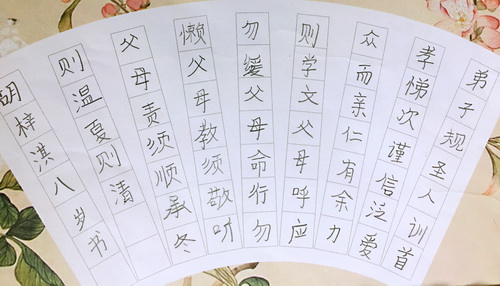 弟子规圣人训首
孝悌次谨信泛爱
众而亲仁有余力
则学文父母呼应
勿缓父母命行勿
懒父母教须敬听
父母责须顺承冬
则温夏则清
胡梓洪八岁书